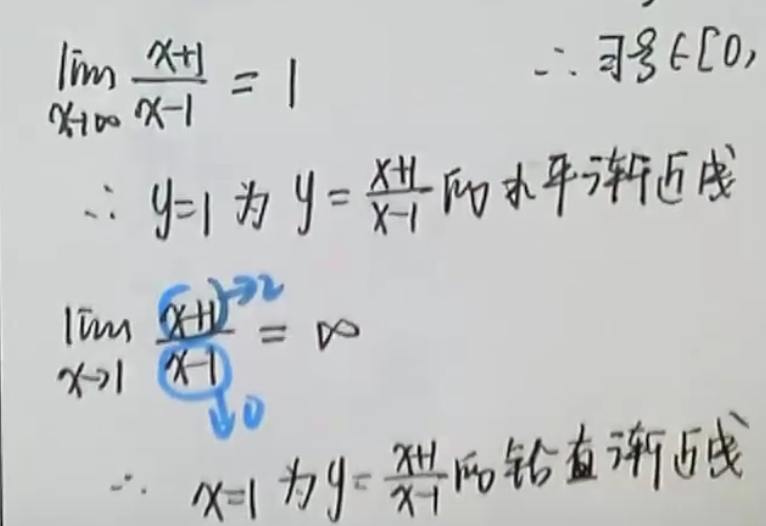 lim x→∞ (x+1)/(x-1) = 1
∴ ∃ξ∈[0,
∴ y=1 为 y = (x+1)/(x-1) 的水平渐近线
lim x→1 (x+1)/(x-1) = ∞
→2
↓0
∴ x=1 为 y= (x+1)/(x-1) 的铅直渐近线